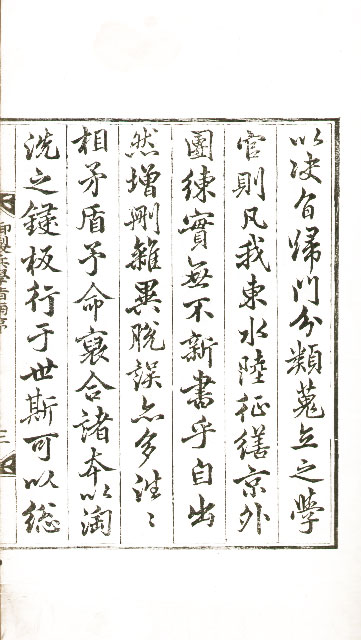 以决旨歸門分類蒐立之學
官則凡我東水陸征繕京外
團練實無不新書乎自出
然增刪雜異脫誤亦多往〻
相矛盾予命裒合諸本以淘
洗之鋟板行于世斯可以總
御製兵學指南序
三